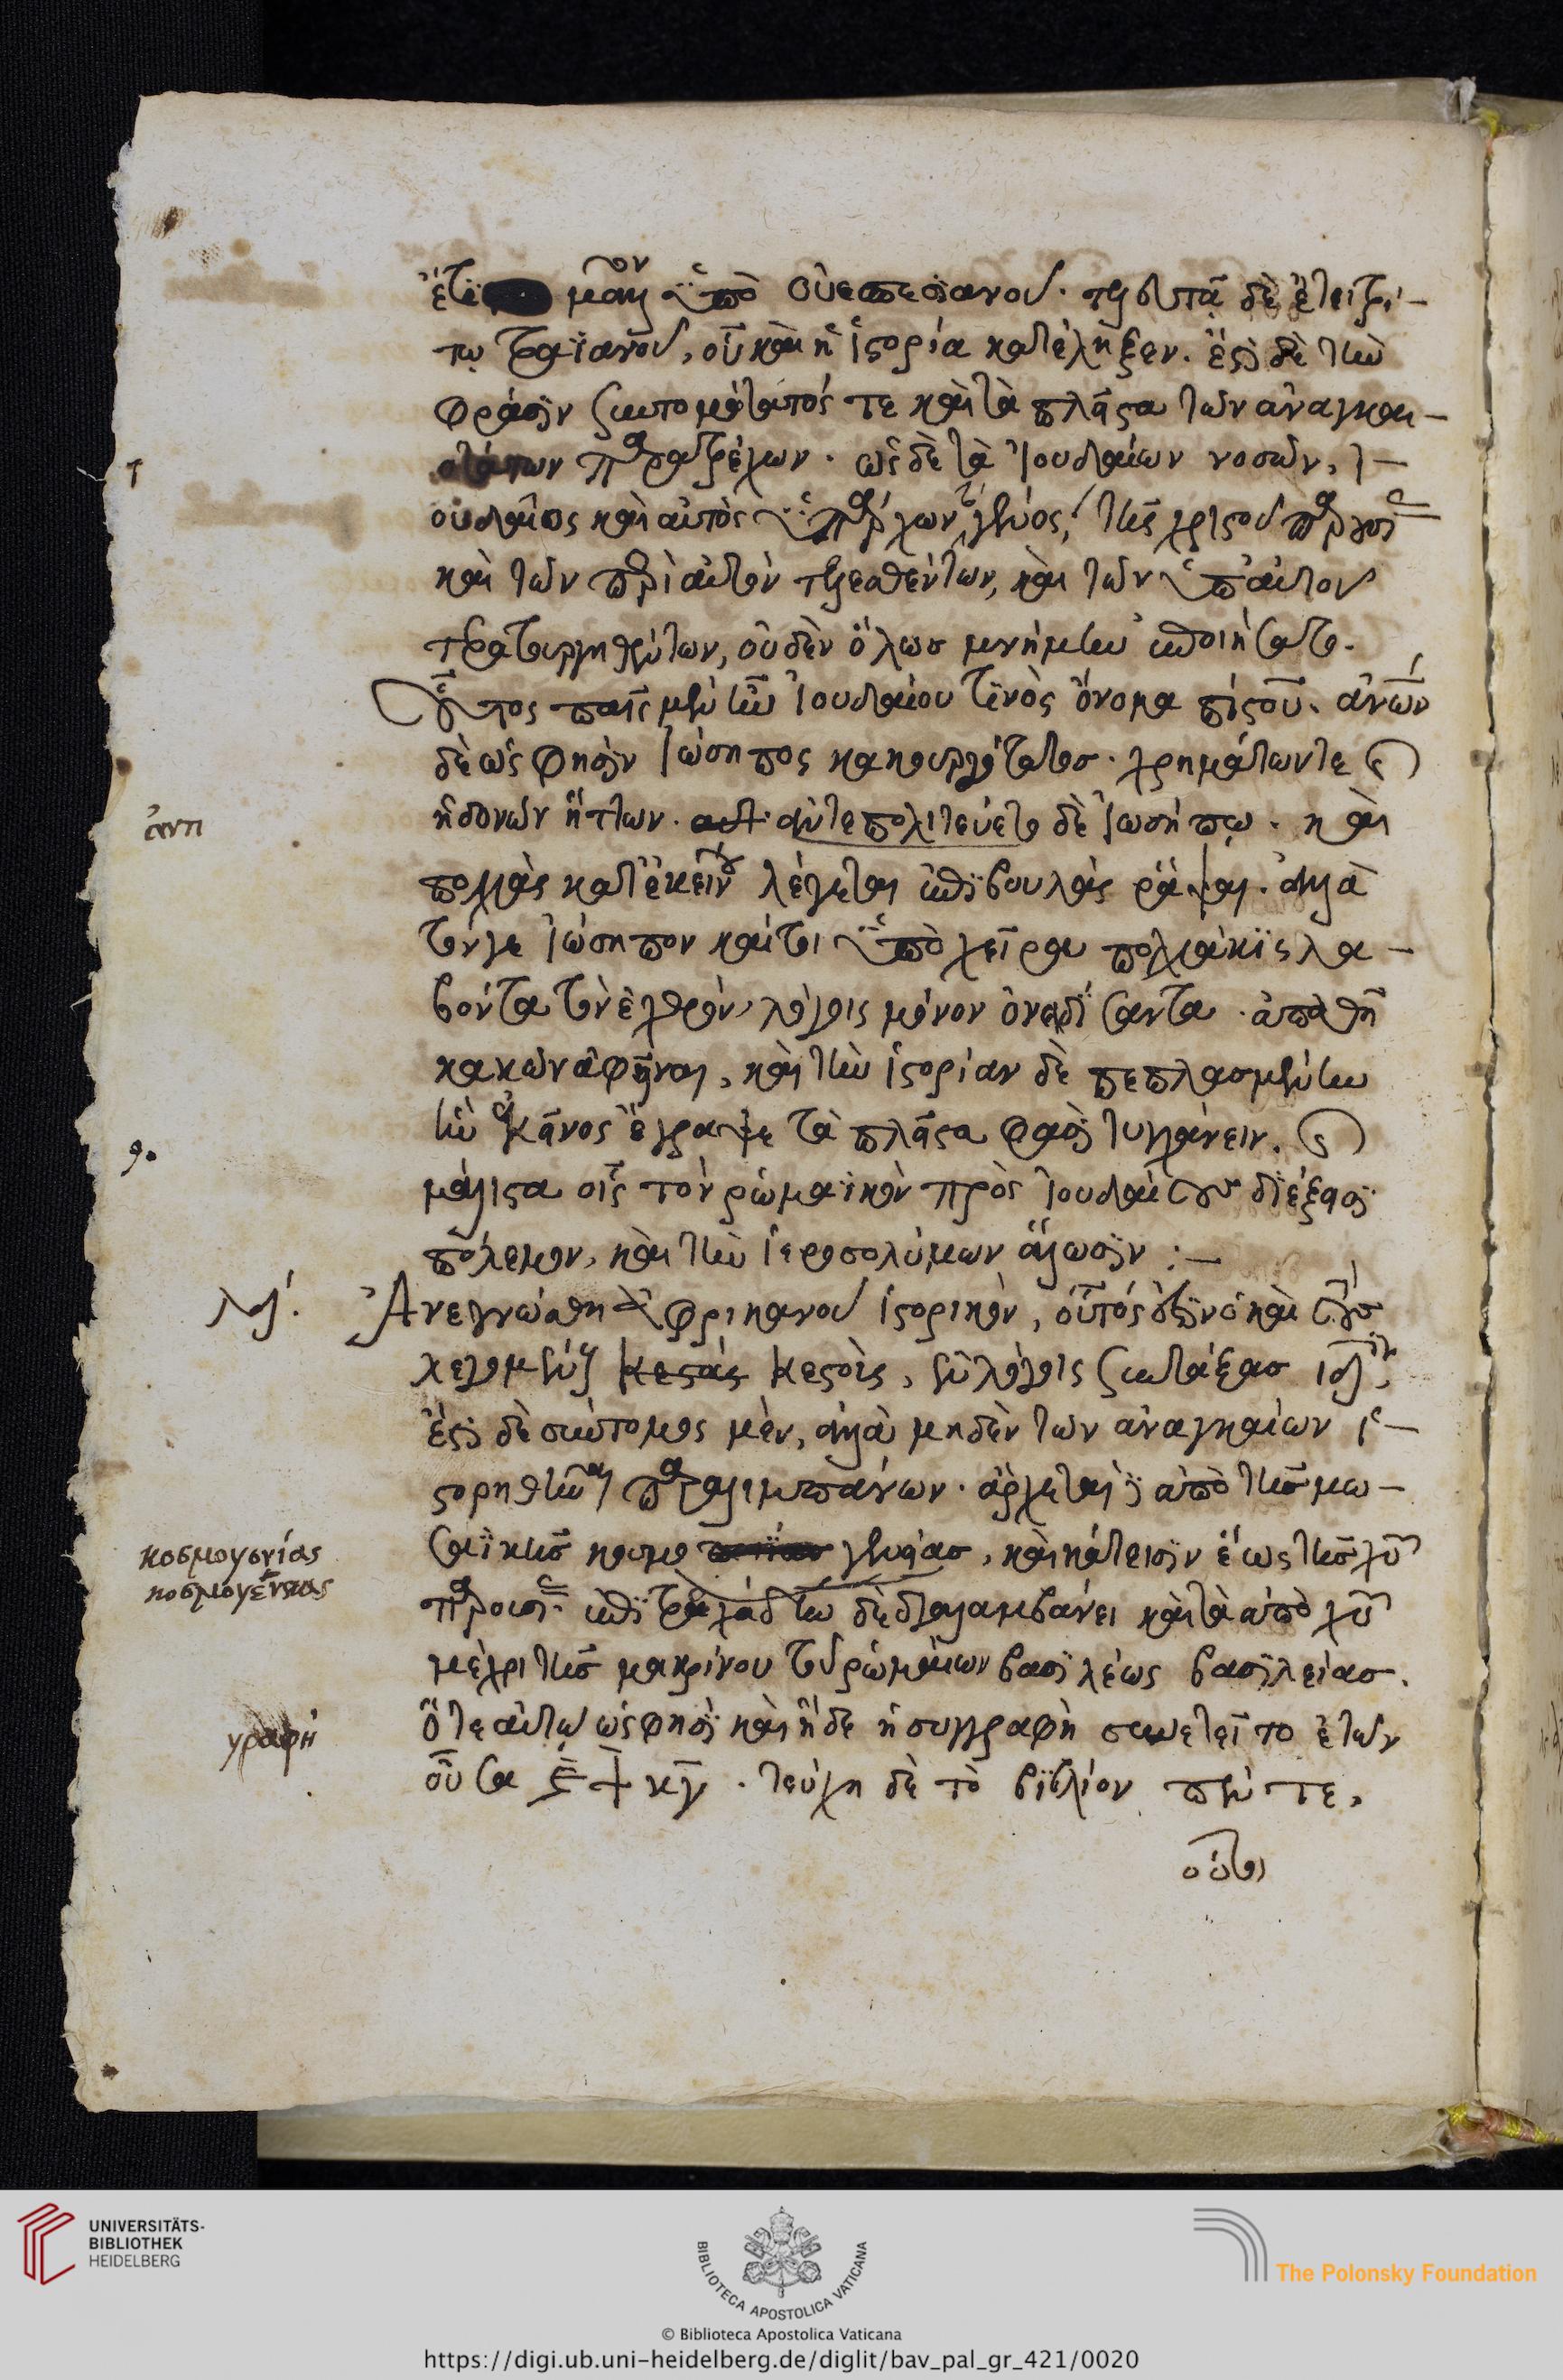 ἔτι μᾶλλον ὑπὸ Οὐεσπεσιανοῦ. τελευτᾷ δὲ ἔτει τρί-
τῳ τραϊανοῦ, οὗ καὶ ἡ ἱστορία κατέληξεν. ἔστι δὲ τὴν
φράσιν συντομώτατός τε καὶ τὰ πλεῖστα τῶν ἀναγκαι-
οτάτων παρατρέχων. ὡς δὲ τὰ Ἰουδαίων νοσῶν, ἰ-
ουδαῖος καὶ αὐτὸς ὑπάρχων τὸ γένος, τῆς χριστοῦ παρουσίας
καὶ τῶν περὶ αὐτὸν τελεσθέντων, καὶ τῶν ὑπ' αὐτοῦ
τερατουργηθέντων, οὐδὲν ὅλως μνήμην ἐποιήσατο.
Οὗτος παῖς μὲν ἦν Ἰουδαίου τινὸς ὄνομα πίστου. ἀνων
δὲ ὥς φησιν Ἰώσηπος κακουργότατος. χρημάτων τε καὶ
ἀντι
ἡδονῶν ἥττων. ἀντεπολιτεύετο δὲ Ἰωσήπῳ. καὶ
πολλὰς κατ' ἐκείνου λέγεται ἐπιβουλὰς ῥάψαι. ἀλλὰ
τόν γε Ἰώσηπον καίτοι ὑπὸ χεῖρα πολλάκις λα-
βόντα τὸν ἐχθρόν, λόγοις μόνον ὀνειδίσαντα. ἀπαθῆ
κακῶν ἀφεῖναι, καὶ τὴν ἱστορίαν δὲ πεπλασμένην
ἣν ἐκεῖνος ἔγραψε τὰ πλεῖστα φασὶ τυγχάνειν. καὶ
μάλιστα οἷς τὸν ῥωμαϊκὸν πρὸς Ἰουδαίους διέξεισι
πόλεμον, καὶ τὴν ἱεροσολύμων ἅλωσιν :—
λδ'. Ἀνεγνώσθη Ἀφρικανοῦ ἱστορικόν, οὗτός ἐστιν ὁ καὶ τοὺς
λεγομένους κεστὰς κεστοὺς, ἐν λόγοις συντάξας ιδ.
ἔστι δὲ σύντομος μέν, ἀλλὰ μηδὲν τῶν ἀναγκαίων ἱ-
στορηθῆναι παραλιμπάνων. ἄρχεται δὲ ἀπὸ τῆς μω-
κοσμογονίας
κοσμογένειας
σαϊκῆς κοσμογενείας, καὶ κάτεισιν ἕως τῆς χυ
παρουσίας. ἐπιτροχάδην δὲ διαλαμβάνει καὶ τὰ ἀπὸ χυ
μέχρι τῆς μακρίνου τοῦ ῥωμαίων βασιλέως βασιλείας.
γραφή
ὅτε αὐτῷ ὥς φησι καὶ ἥδε ἡ συγγραφὴ συνετελεῖτο ἐτῶν
οὖσα ͵εψκγ. τεύχη δὲ τὸ βιβλίον πέντε,
οὗτος
UNIVERSITÄTS-
BIBLIOTHEK
HEIDELBERG
BIBLIOTHECA APOSTOLICA VATICANA
The Polonsky Foundation
© Biblioteca Apostolica Vaticana
https://digi.ub.uni-heidelberg.de/diglit/bav_pal_gr_421/0020